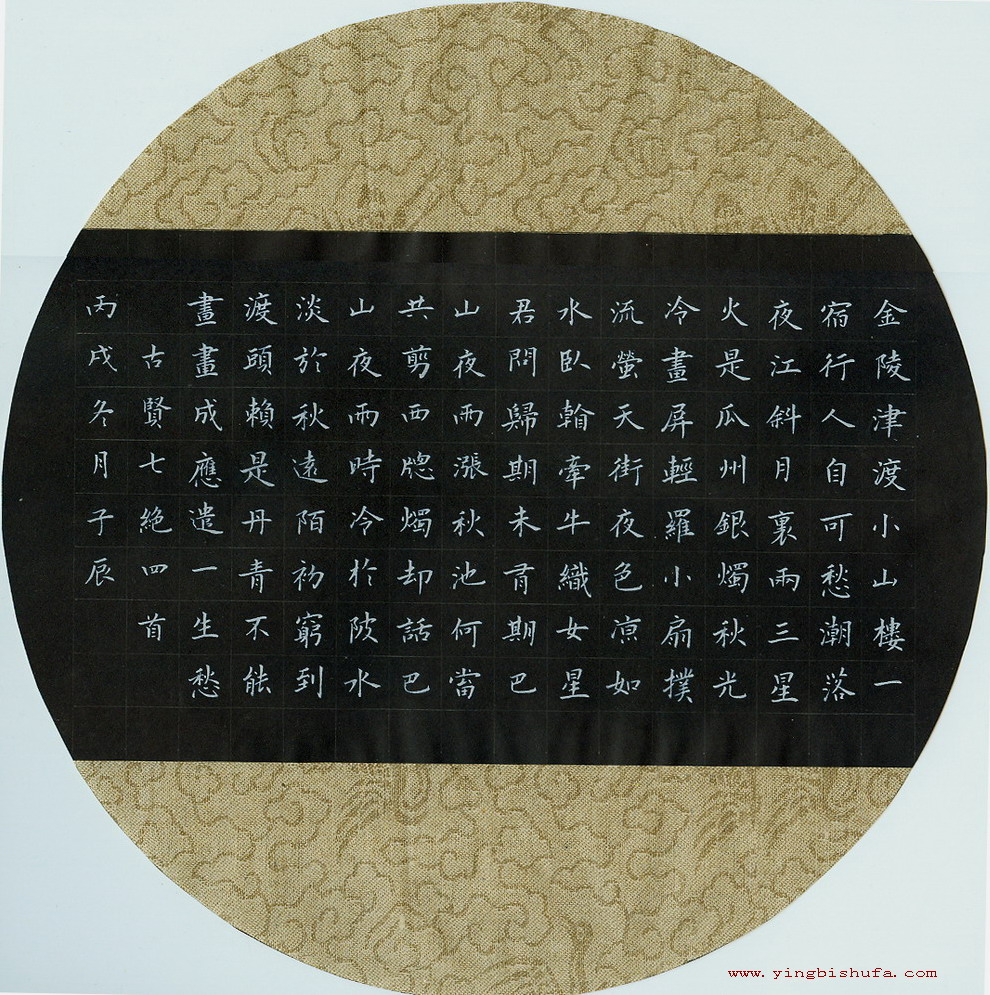 金陵津渡小山樓一
宿行人自可愁潮落
夜江斜月裏兩三星
火是瓜州銀燭秋光
冷畫屏輕羅小扇撲
流螢天街夜色凉如
水臥翰牽牛織女星
君問歸期未有期巴
山夜雨漲秋池何當
共剪西牕燭却話巴
山夜雨時冷於陂水
淡於秋遠陌初窮到
渡頭賴是丹青不能
畫畫成應遣一生愁
古賢七絕四首
丙戌冬月子辰
www.yingbishufa.com